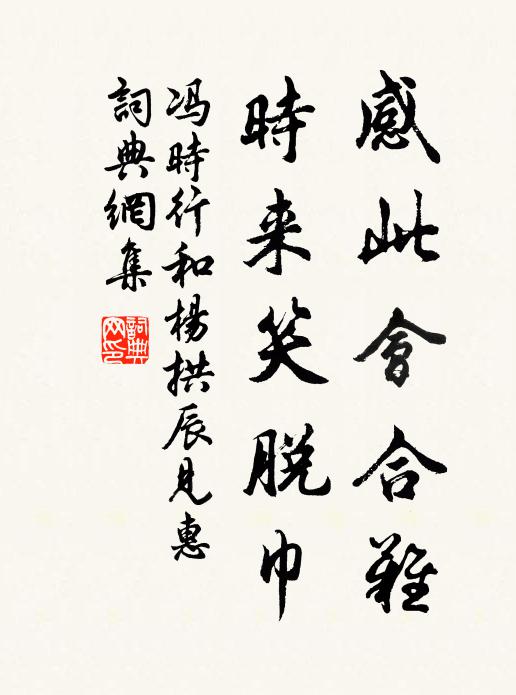 感此會合難
時来笑脱巾
冯時行和楊拱辰見惠
詞典網集
詞典網印